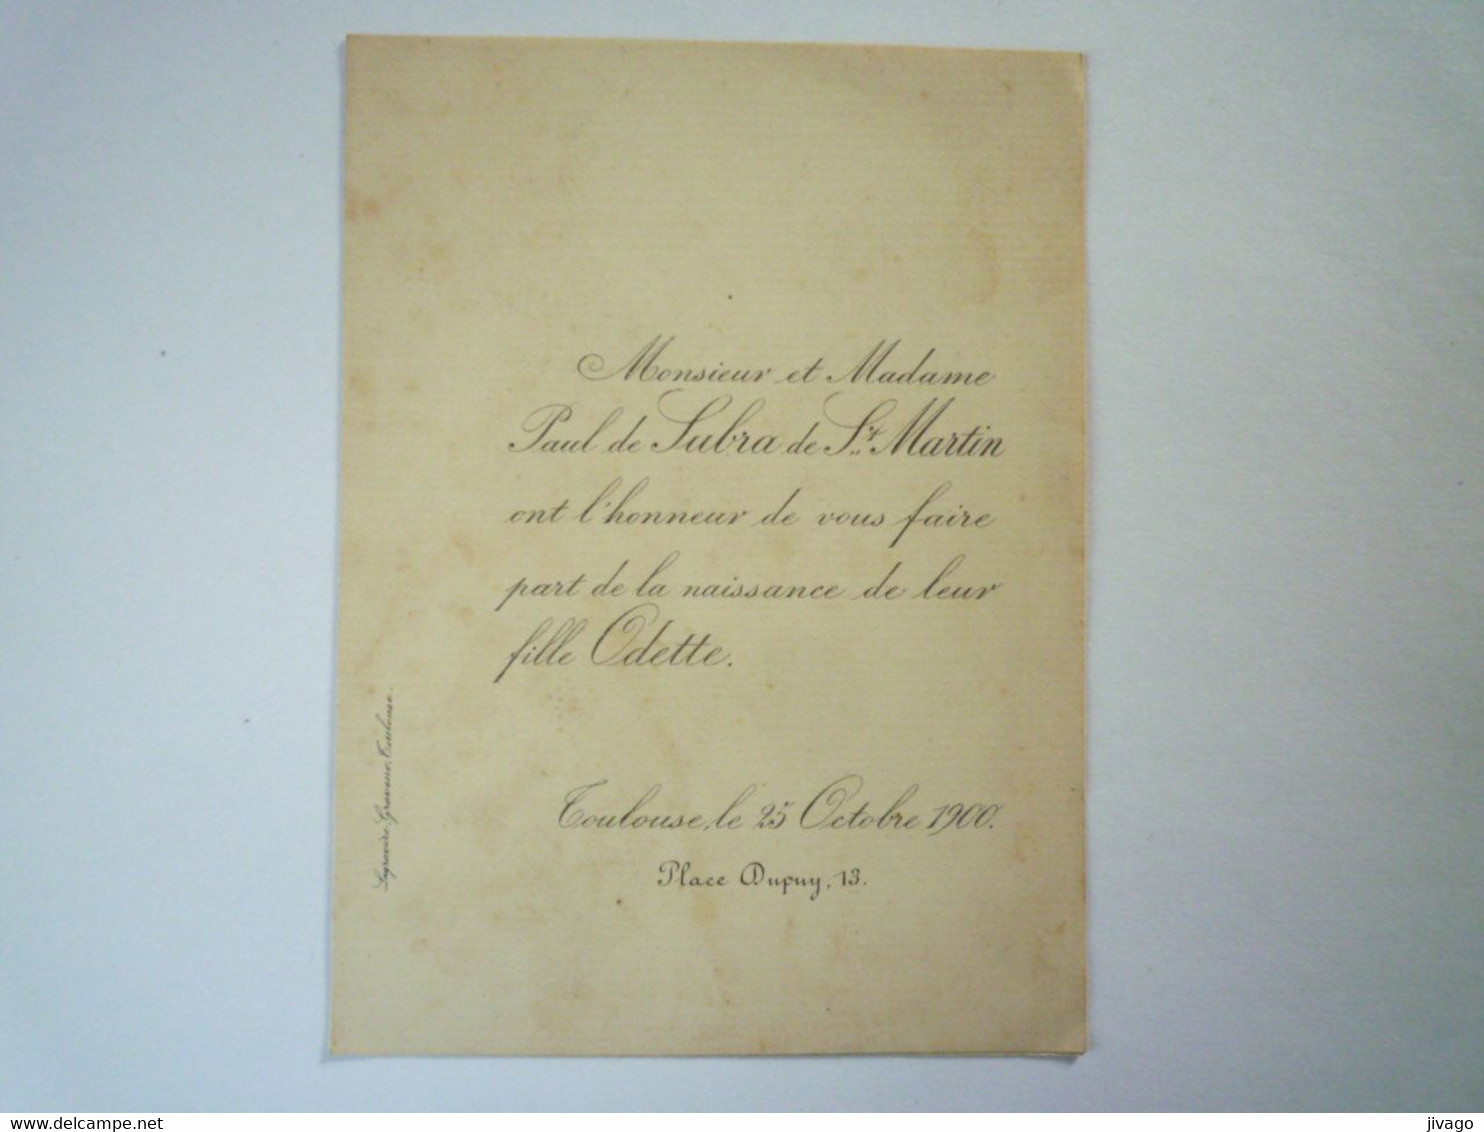 Monsieur et Madame
Paul de Subra de St. Martin
ont l'honneur de vous faire
part de la naissance de leur
fille Odette.
Toulouse, le 25 Octobre 1900.
Place Dupuy, 13.
Graveur, Toulouse.
www.delcampe.net
jivago